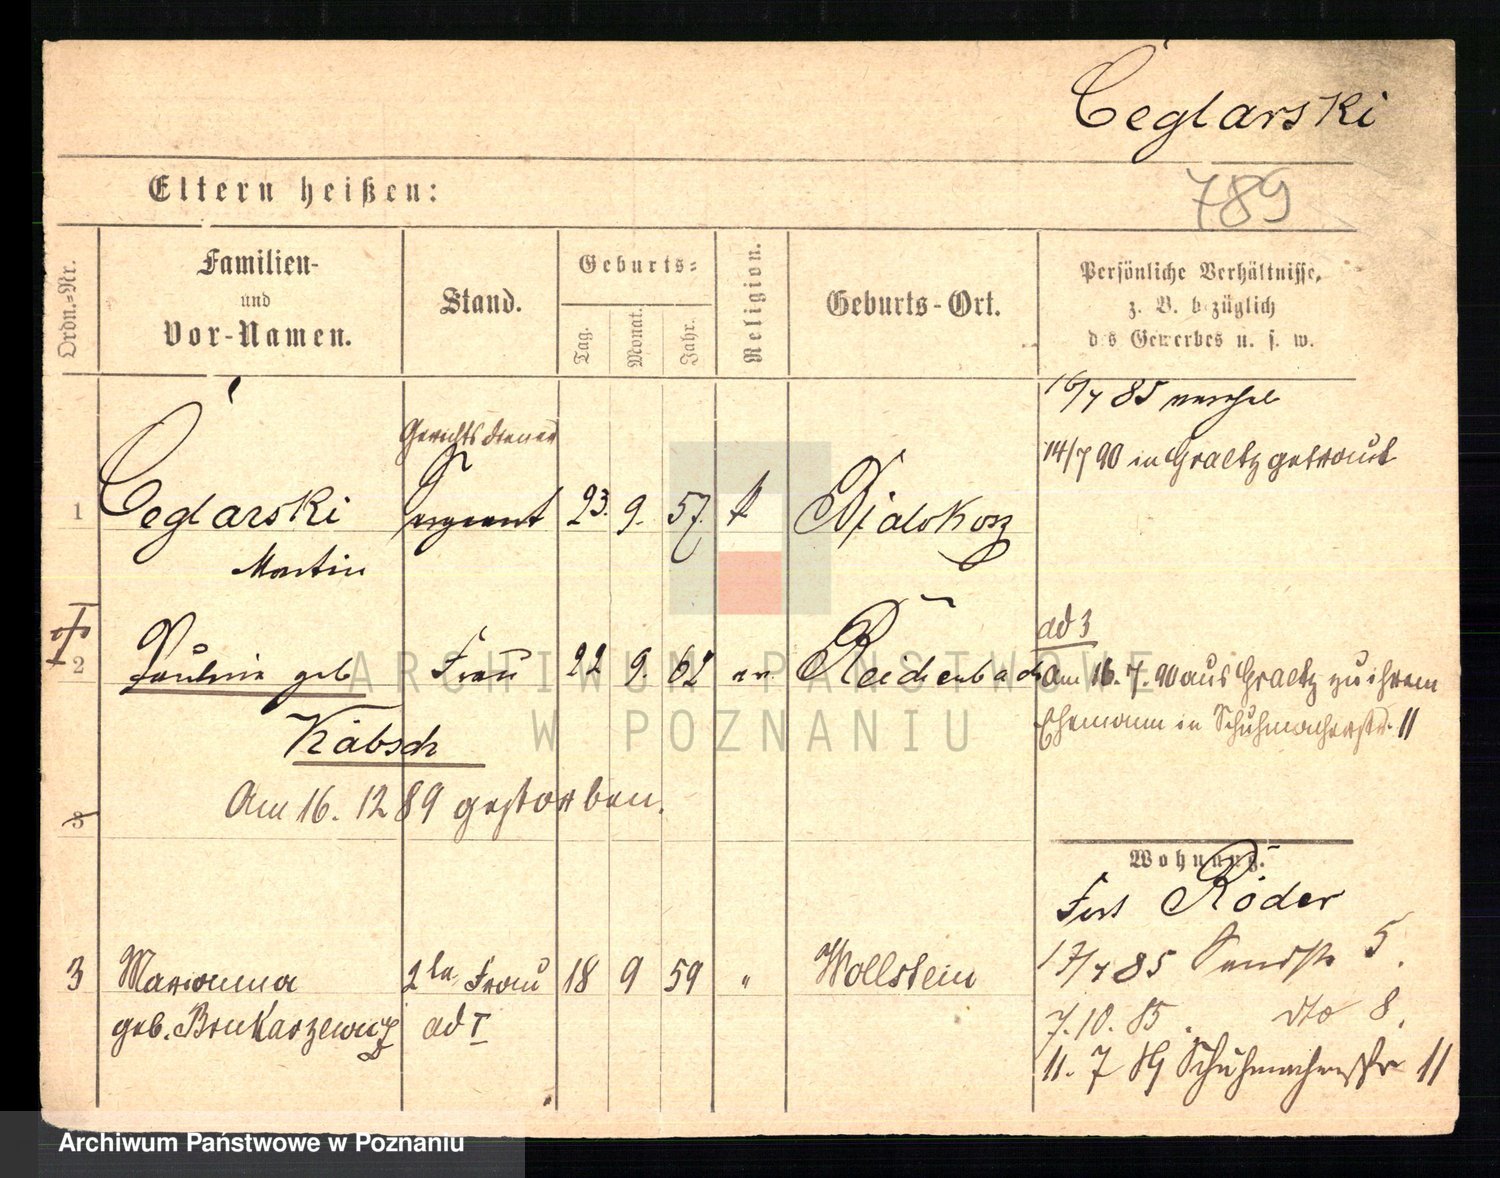 Ceglarski
Eltern heißen:
789
Ordn.-Nr.
Familien-
und
Vor-Namen.
Stand.
Geburts-
Tag.
Monat.
Jahr.
Religion.
Geburts-Ort.
Persönliche Verhältnisse,
z. B. bezüglich
des Gewerbes u. s. w.
16/7 85
14/7 90 in Graetz getraut
Gerichtsdiener
1 Ceglarski Sergeant 23. 9. 57. k
Martin
ad 3
2 Pauline geb Frau 22 9. 62 ev. Reichenbach
Am 16. 7. 90 aus Graetz zu ihrem
Käbsch
Ehemann in Schuhmacherstr. 11
Am 16. 12 89 gestorben.
3
Wohnung.
Fort Röder
3 Marianna 2te Frau 18 9 59 " Wollstein
17/7 85 Sandstr 5.
geb. ad I
7. 10. 85. dto 8.
11. 7 89 Schuhmacherstr 11
ARCHIWUM PAŃSTWOWE
W POZNANIU
Archiwum Państwowe w Poznaniu